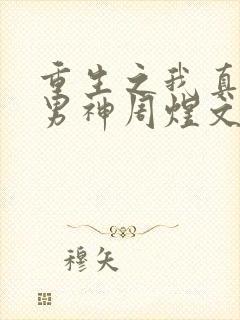 重生之我真
男神周煌文
穆矢